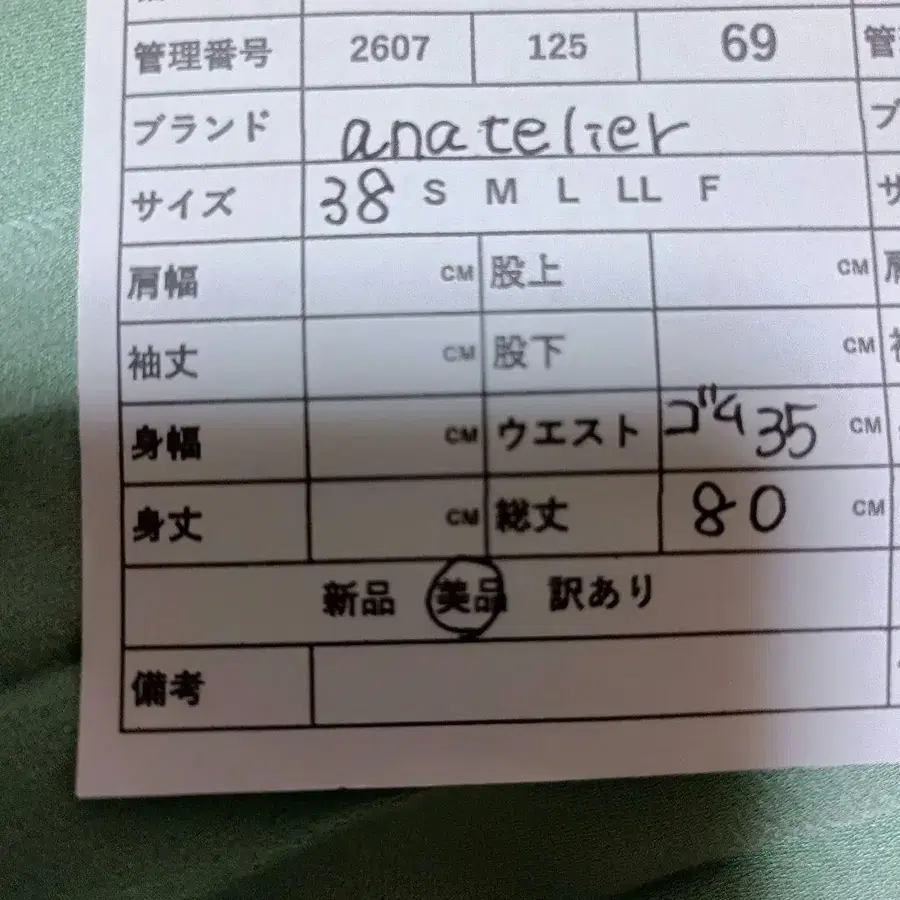 管理番号 2607 125 69
ブランド anatelier
サイズ 38 S M L LL F
肩幅 CM 股上 CM
袖丈 CM 股下 CM
身幅 CM ウエスト ゴム 35 CM
身丈 CM 総丈 80 CM
新品 美品 訳あり
備考